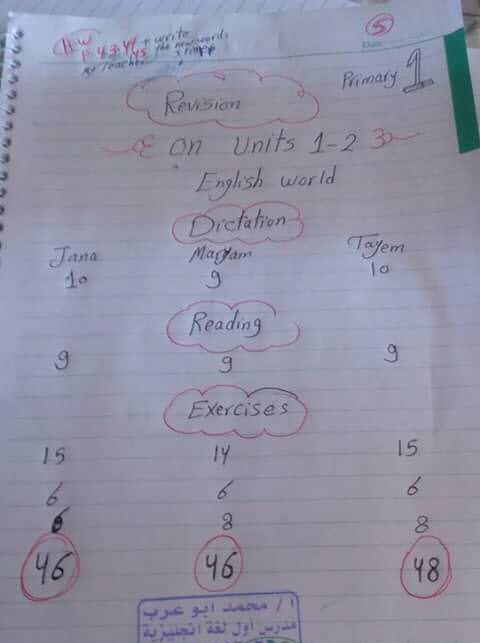 H.W P. 43-44 + write
45 the new words
My Teacher 3 times
5
Date:
Primary 1
Revision
on Units 1-2
English world
Dictation
Jana Maryam Tayem
10 9 10
Reading
9 9 9
Exercises
15 14 15
6 6 6
6 8 8
46 46 48
أ / محمد ابو عرب
مدرس أول لغة انجليزية